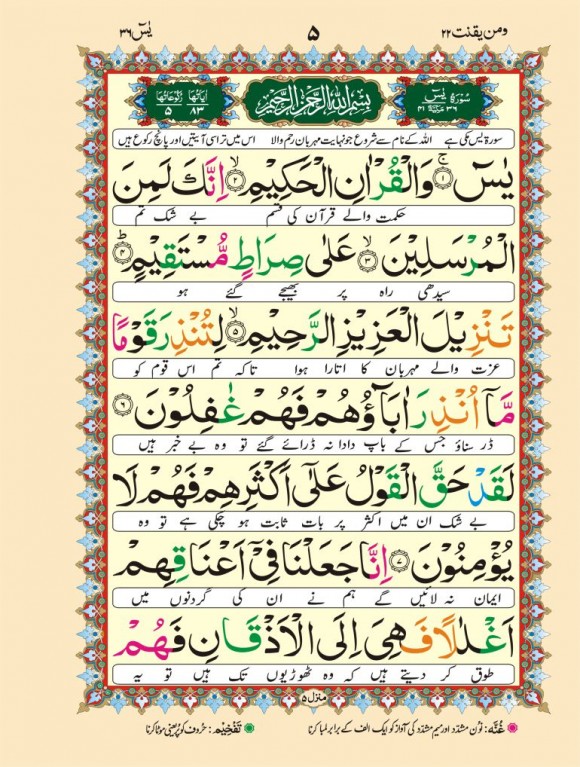 ومن یقنت ٢٢
۵
یٰسٓ ٣٦
سورۃ یٰسٓ
بِسْمِ اللّٰهِ الرَّحْمٰنِ الرَّحِیْمِ
اٰیاتها ٨٣ رکوعاتها ۵
سورۃ یٰس مکی ہے اللہ کے نام سے شروع جو نہایت مہربان رحم والا اس میں تراسی آیتیں اور پانچ رکوع ہیں
یٰسٓ ۚ﴿۱﴾ وَالْقُرْاٰنِ الْحَكِیْمِ ۙ﴿۲﴾ اِنَّكَ لَمِنَ
حکمت والے قرآن کی قسم بے شک تم
الْمُرْسَلِیْنَ ۙ﴿۳﴾ عَلٰی صِرَاطٍ مُّسْتَقِیْمٍ ؕ﴿۴﴾
سیدھی راہ پر بھیجے گئے ہو
تَنْزِیْلَ الْعَزِیْزِ الرَّحِیْمِ ۙ﴿۵﴾ لِتُنْذِرَ قَوْمًا
عزت والے مہربان کا اتارا ہوا تاکہ تم اس قوم کو
مَّاۤ اُنْذِرَ اٰبَآؤُهُمْ فَهُمْ غٰفِلُوْنَ ﴿۶﴾
ڈر سناؤ جس کے باپ دادا نہ ڈرائے گئے تو وہ بے خبر ہیں
لَقَدْ حَقَّ الْقَوْلُ عَلٰۤی اَكْثَرِهِمْ فَهُمْ لَا
بے شک ان میں اکثر پر بات ثابت ہو چکی ہے تو وہ
یُؤْمِنُوْنَ ﴿۷﴾ اِنَّا جَعَلْنَا فِیْۤ اَعْنَاقِهِمْ
ایمان نہ لائیں گے ہم نے ان کی گردنوں میں
اَغْلٰلًا فَهِیَ اِلَی الْاَذْقَانِ فَهُمْ
طوق کر دیئے ہیں کہ وہ ٹھوڑیوں تک ہیں تو یہ
منزل ۵
غُنَّہ: نون مشدد اور میم مشدد کی آواز کو ایک الف کے برابر لمبا کرنا تَفْخِیْم: حروف کو پُر یعنی موٹا کرنا